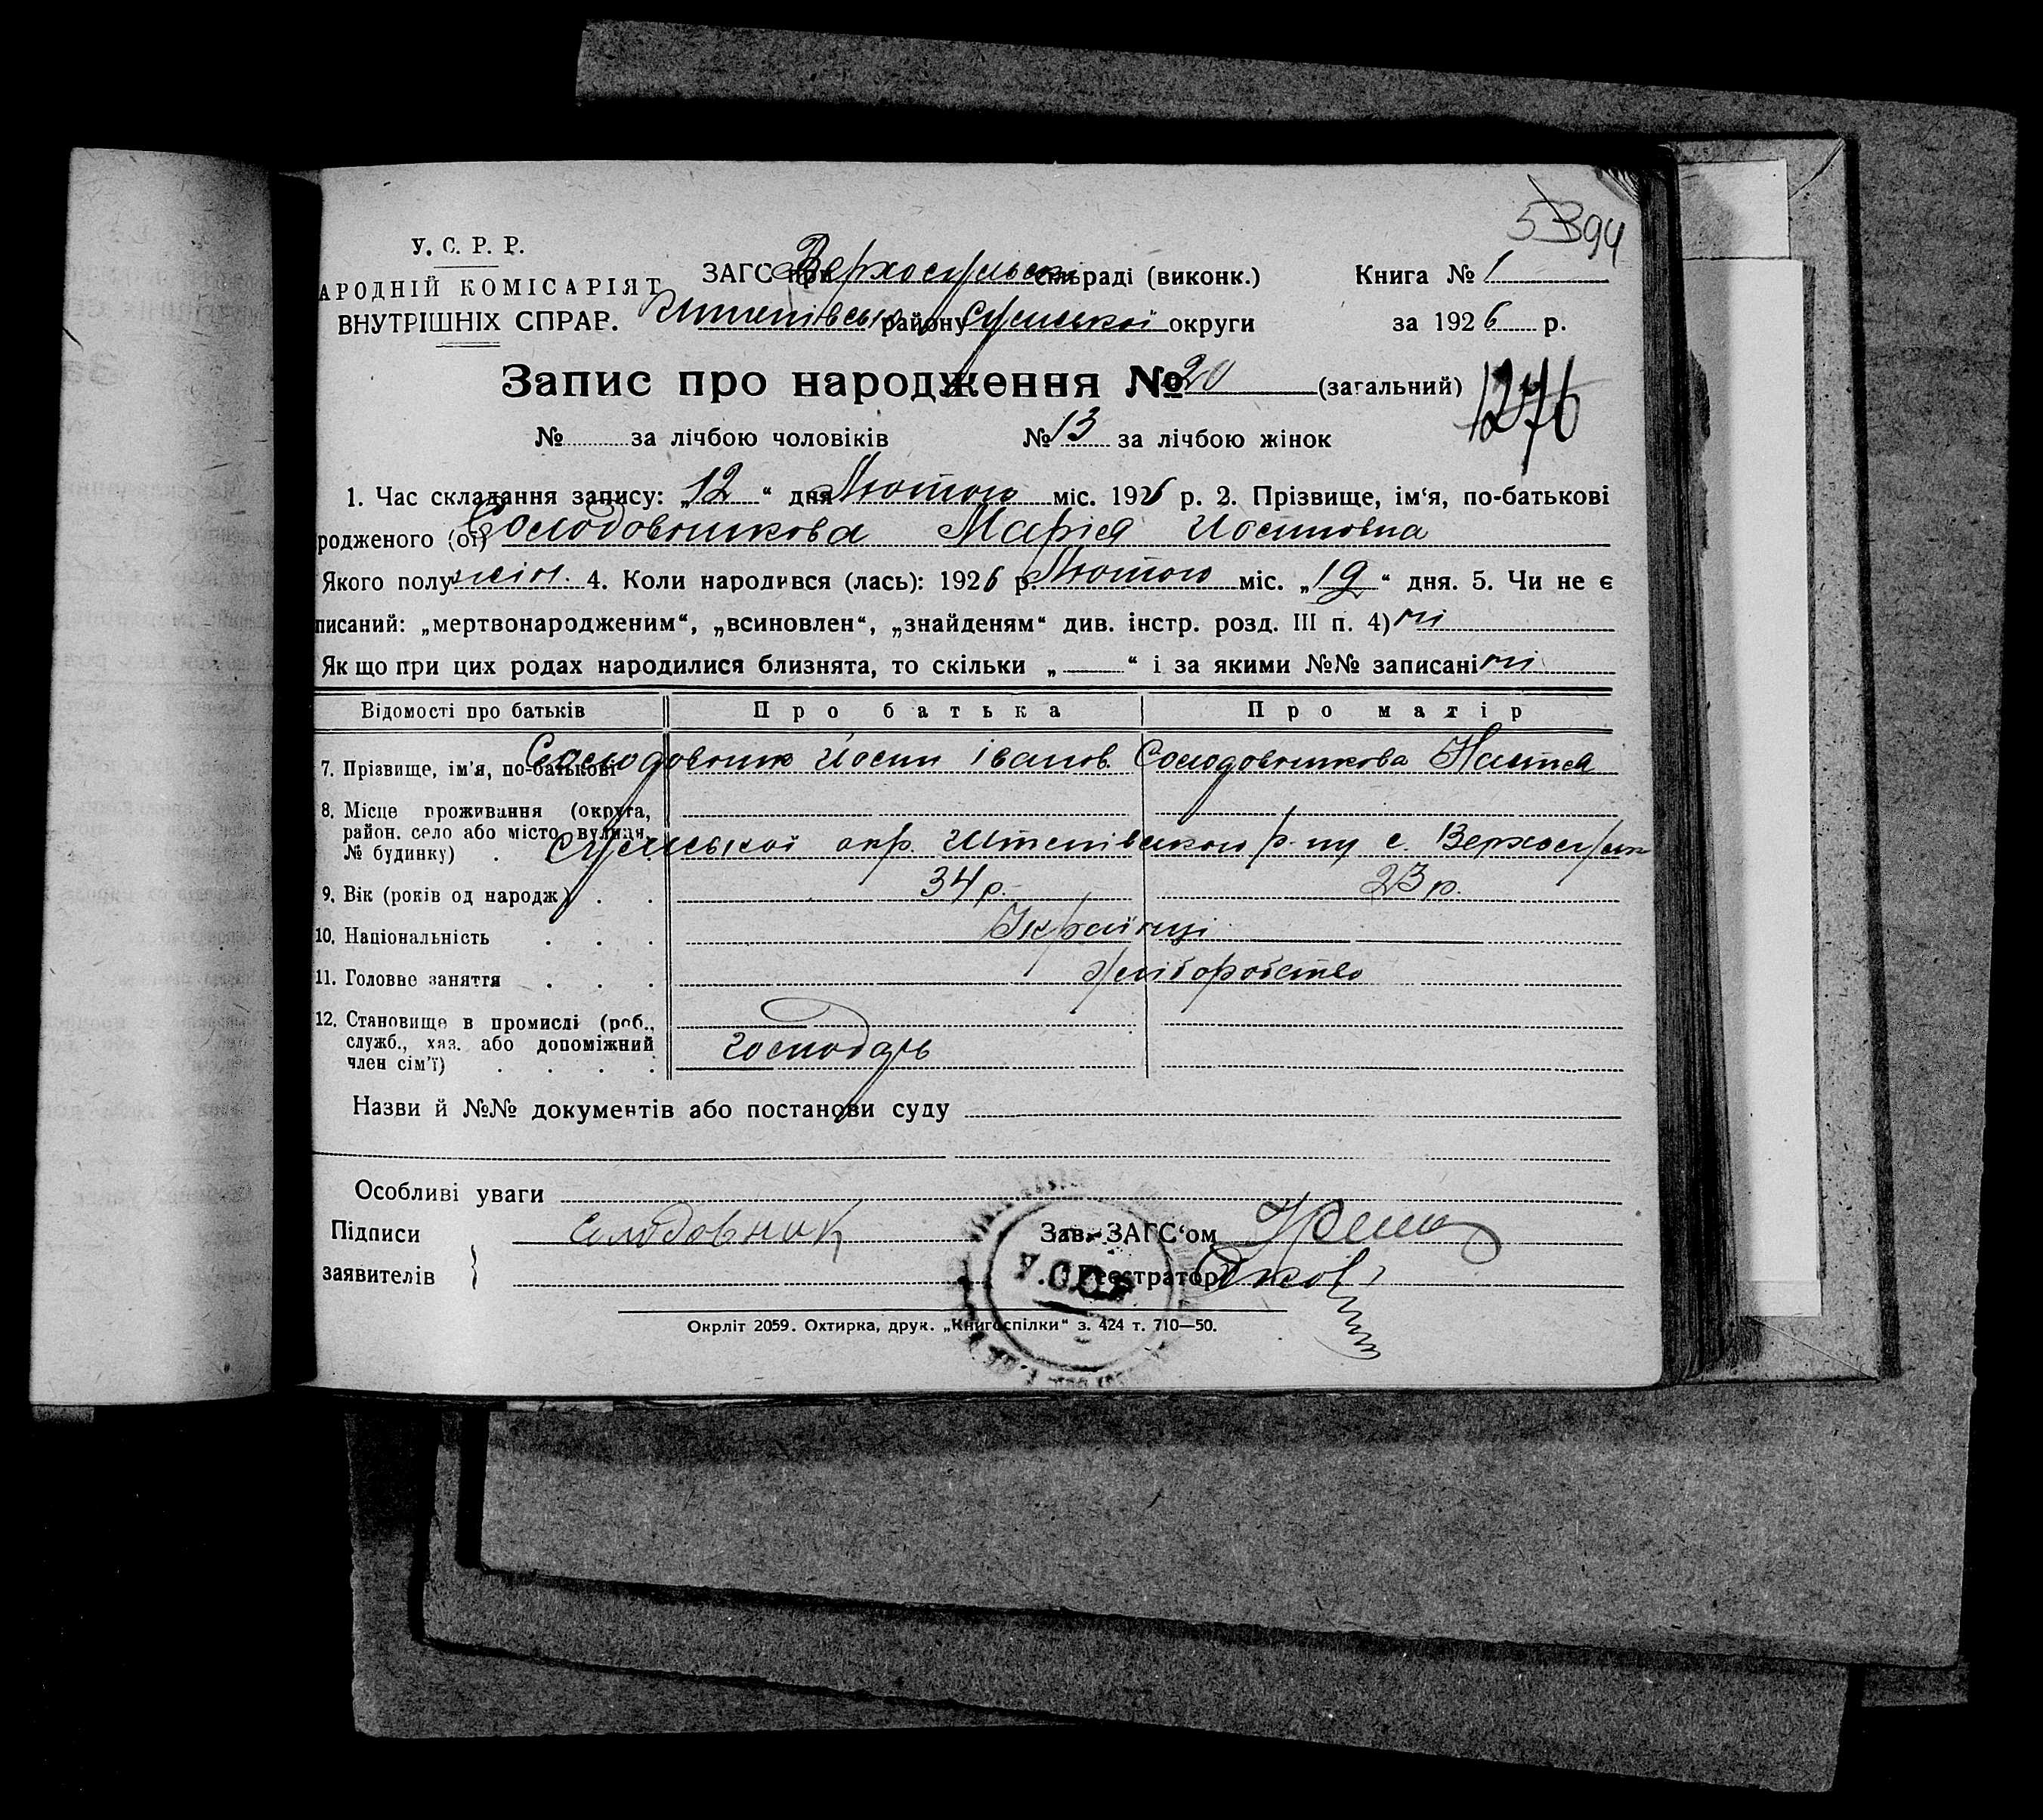 5394
У. С. Р. Р.
АРОДНІЙ КОМІСАРІЯТ
ВНУТРІШНІХ СПРАВ.
ЗАГС при Верхосульськ сільраді (виконк.)
Штепівськ району Сумської округи
Книга № 1
за 1926 р.
Запис про народження № 20 (загальний)
1276
№ за лічбою чоловіків № 13 за лічбою жінок
1. Час складання запису: „12“ дня Лютого міс. 1926 р. 2. Прізвище, ім‘я, по-батькові
родженого (ої) Солодовникова Марія Иосиповна
Якого полу жін. 4. Коли народився (лась): 1926 р. Лютого міс. „19“ дня. 5. Чи не є
писаний: „мертвонародженим“, „всиновлен“, „знайденям“ див. інстр. розд. III п. 4) ні
Якщо при цих родах народилися близнята, то скільки „ “ і за якими №№ записані ні
Відомості про батьків Про батька Про матір
7. Прізвище, ім'я, по-батькові Солодовник Йосип Іванов. Солодовникова Настя
8. Місце проживання (округа,
район. село або місто, вулиця,
№ будинку) . Сумської окр. Штепівського р-ну с. Верхосулк
9. Вік (років од народж.) . . 34 р. 23 р.
10. Національність . . . Українці
11. Головне заняття . . . Хліборобство
12. Становище в промислі (роб.,
служб., хаз. або допоміжний
член сім'ї) . . . . Господарь
Назви й №№ документів або постанови суду
Особливі уваги
Підписи Солодовник Зав. ЗАГС‘ом
заявителів } Реєстратор
У.С.Р.Р.
Окрліт 2059. Охтирка, друк. „Книгоспілки“ з. 424 т. 710—50.